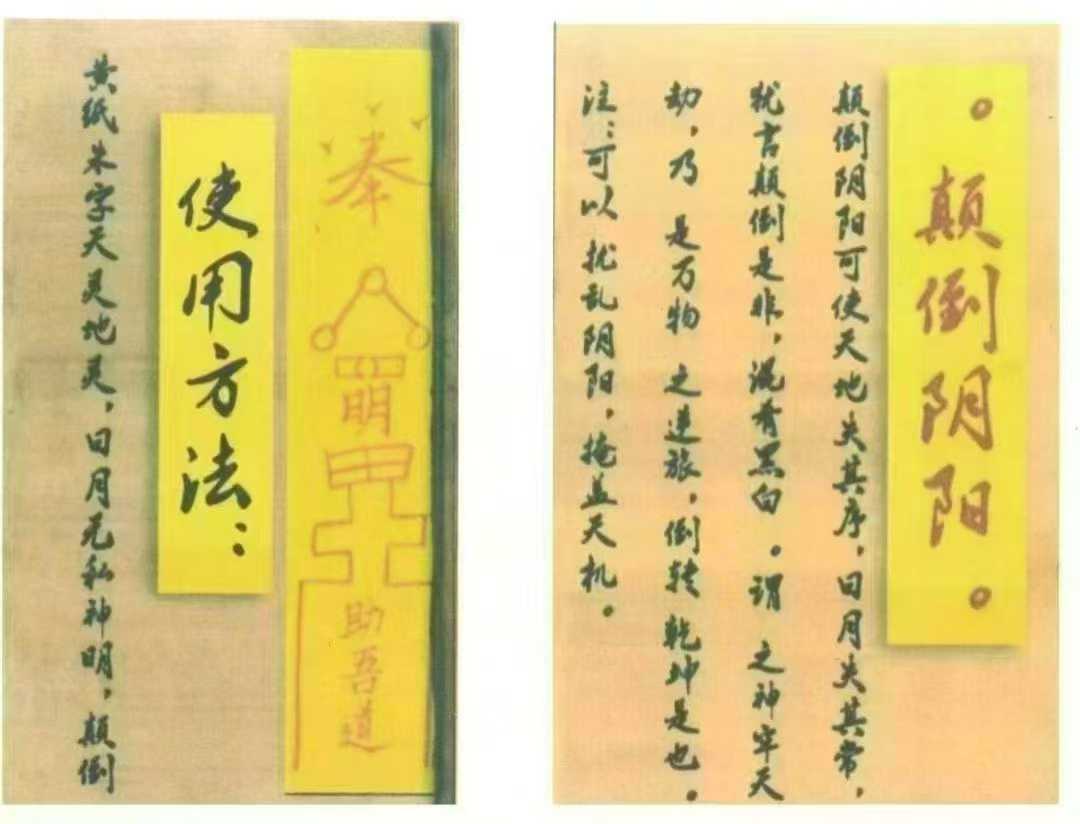 。颠倒阴阳。
颠倒阴阳可使天地失其序,日月失其常,
犹言颠倒是非,混肴黑白。谓之神牢天
劫,乃是万物之逆旅,倒转乾坤是也。
注:可以扰乱阴阳,掩盖天机。
奉
助吾道
使用方法:
黄纸朱字天灵地灵,日月无私神明,颠倒